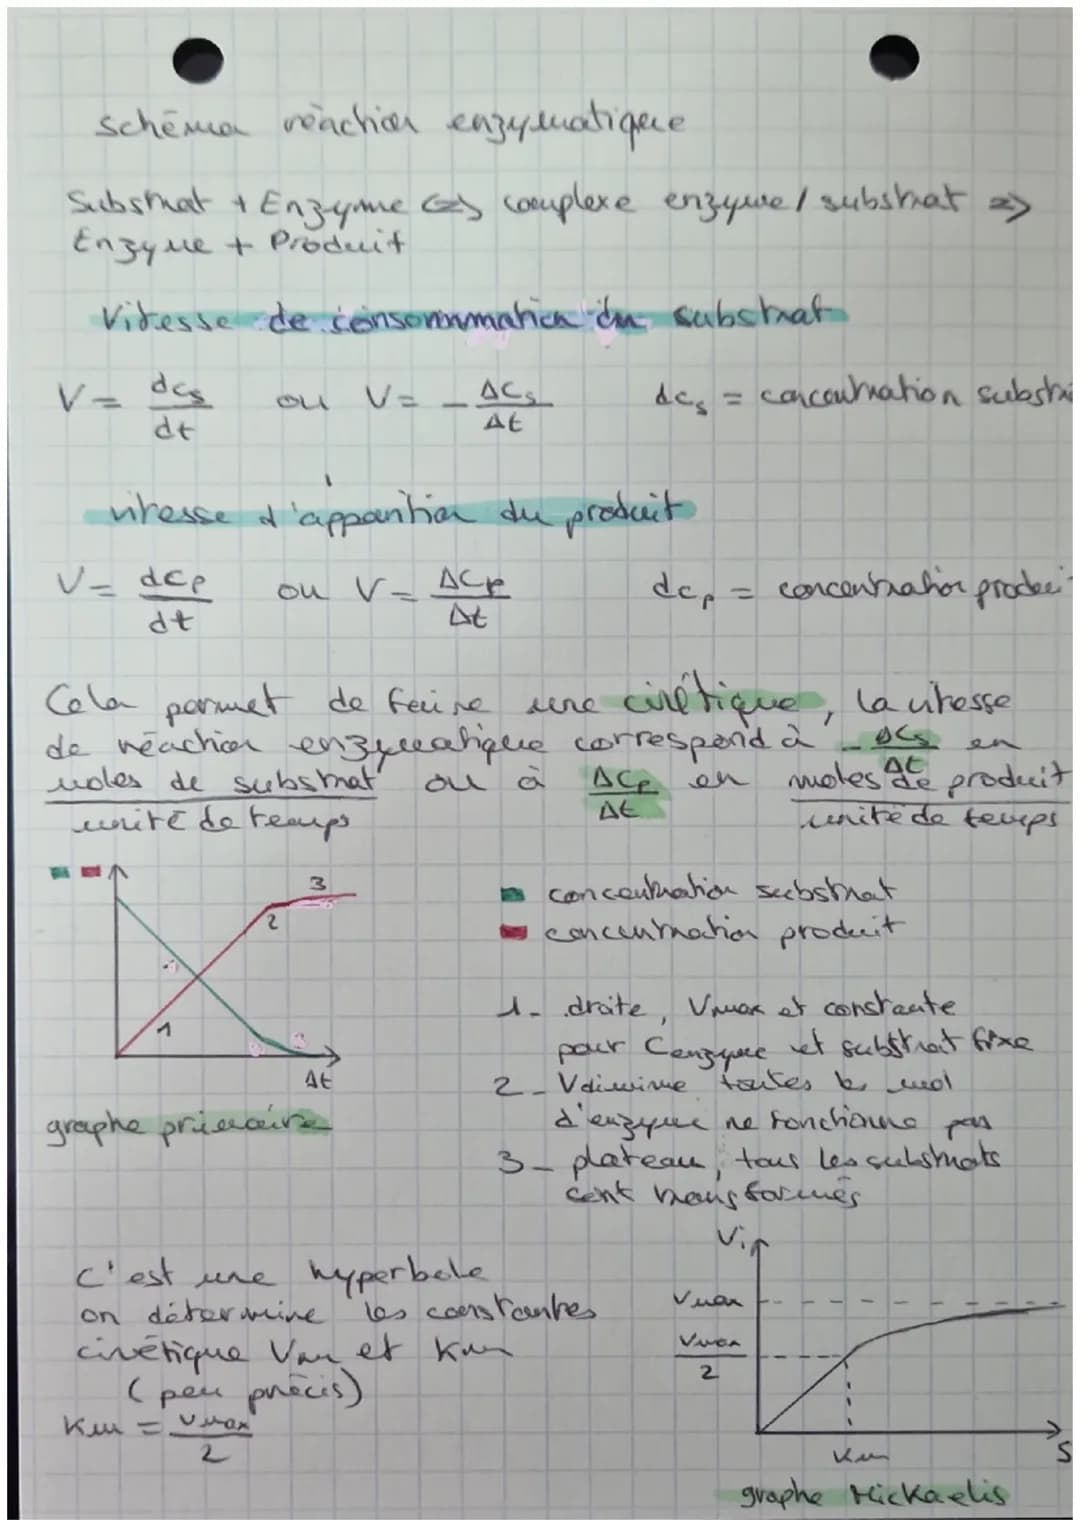 schéma réaction enzymatique
Substrat + Enzyme <=> complexe enzyme / substrat =>
Enzyme + Produit
Vitesse de consommation du substrat
V = dCs/dt ou V = - ΔCs/Δt dcs = concentration substra
vitesse d'apparition du produit
V = dCp/dt ou V = ΔCp/Δt dcp = concentration produi
Cela permet de faire une cinétique, la vitesse
de réaction enzymatique correspond à - ΔCs/Δt en
moles de substrat / unité de temps ou à ΔCp/Δt en moles de produit / unité de temps
3
2
1
Δt
graphe primaire
concentration substrat
concentration produit
1- droite, Vmax et constante
pour Cenzyme et substrat fixe
2- V diminue toutes les mol
d'enzyme ne fonctionne pas
3- plateau, tous les substrats
sont transformés
C'est une hyperbole
on détermine les constantes
cinétique Vm et Km
(peu précis)
Km = Vmax/2
Vi
Vmax
Vmax/2
Km
S
graphe Mickaelis